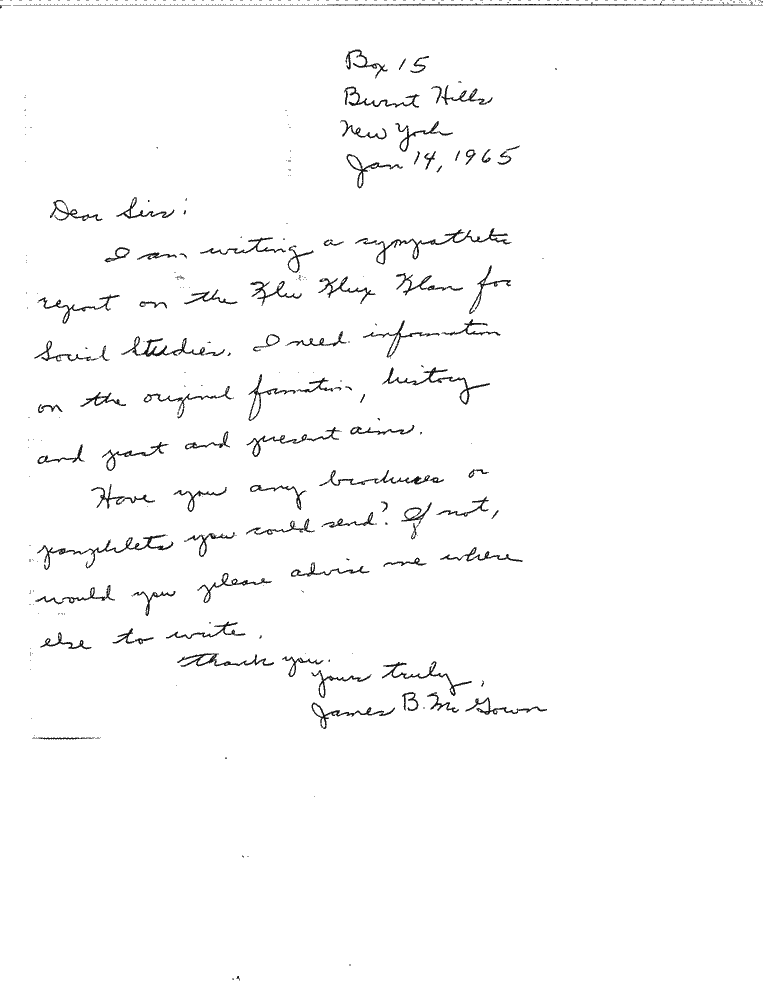 Box 15
Burnt Hills
New York
Jan 14, 1965
Dear Sirs:
I am writing a sympathetic
report on the Klu Klux Klan for
Social Studies. I need information
on the original formation, history
and past and present aims.
Have you any brochures or
pamphlets you could send? If not,
would you please advise me where
else to write.
Thank you.
Yours truly,
James B. McGown